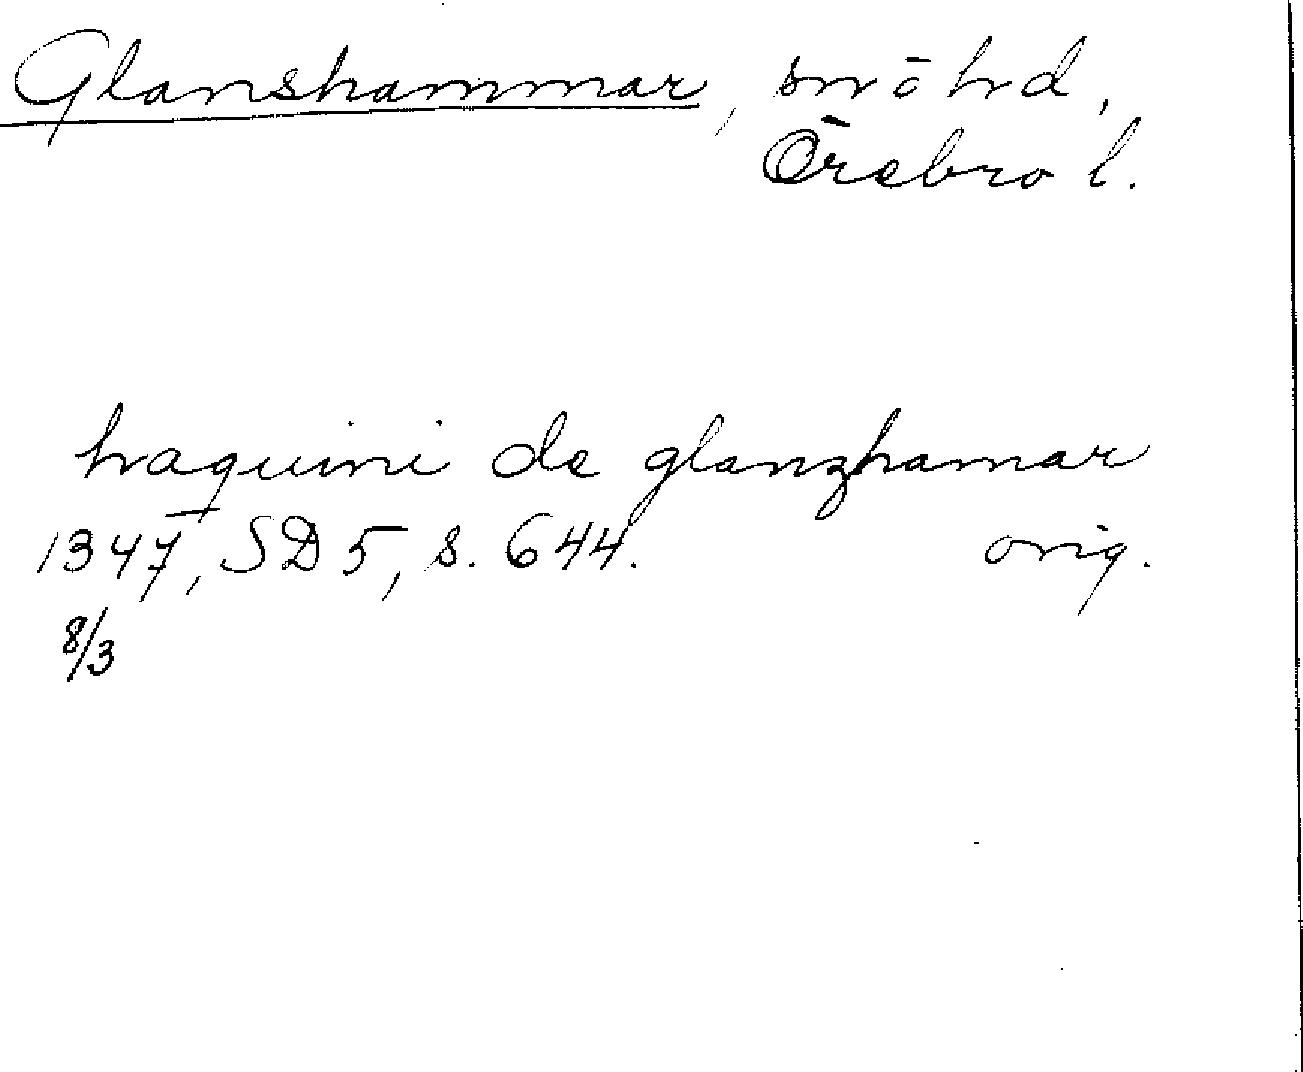 Glanshammar, sn o hd,
Örebro l.
haquini de glanzhamar
1347, SD 5, s. 644. orig.
8/3